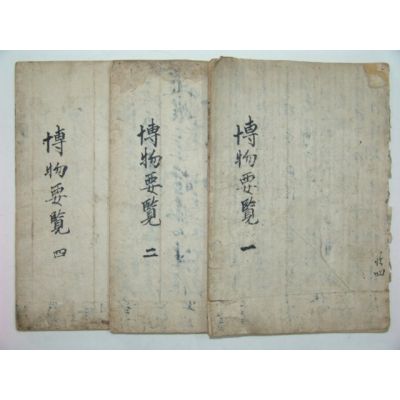 博物要覧 一
博物要覧 二
博物要覧 四
共四